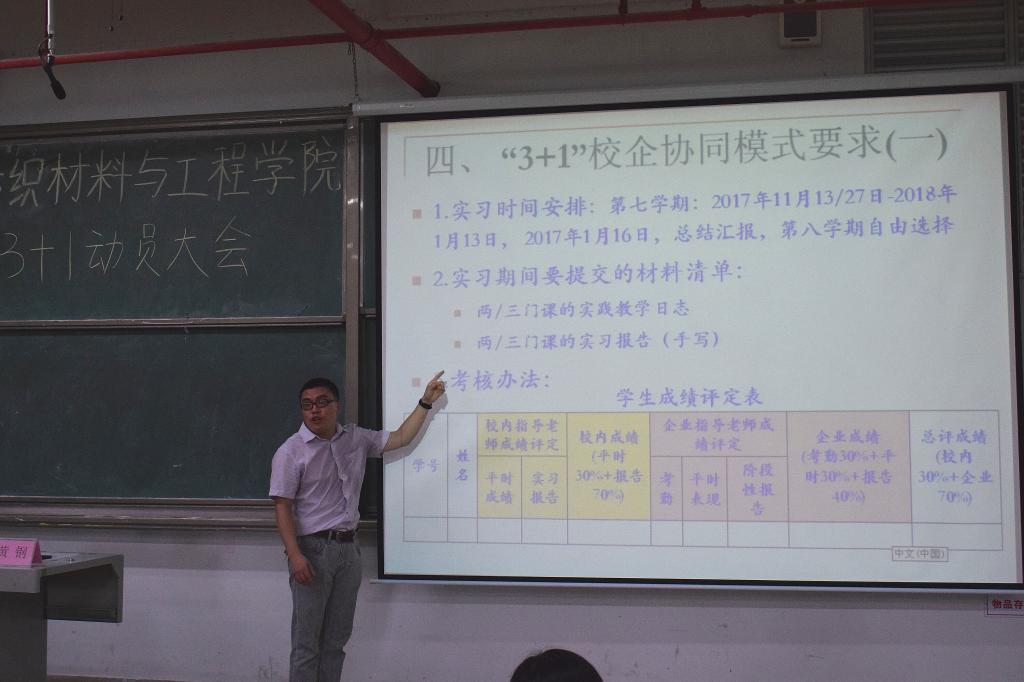 织材料与工程学院
3+1动员大会
四、“3+1”校企协同模式要求(一)
1.实习时间安排：第七学期：2017年11月13/27日-2018年
1月13日，2017年1月16日，总结汇报，第八学期自由选择
2.实习期间要提交的材料清单：
两/三门课的实践教学日志
两/三门课的实习报告（手写）
考核办法：
学生成绩评定表
学号
姓名
校内指导老
师成绩评定
平时
成绩
实习
报告
校内成绩
(平时
30%+报告
70%)
企业指导老师成
绩评定
考
勤
平时
表现
阶段
性报
告
企业成绩
(考勤30%+平
时30%+报告
40%)
总评成绩
(校内
30%+企业
70%)
中文(中国)
黄钢
物品存